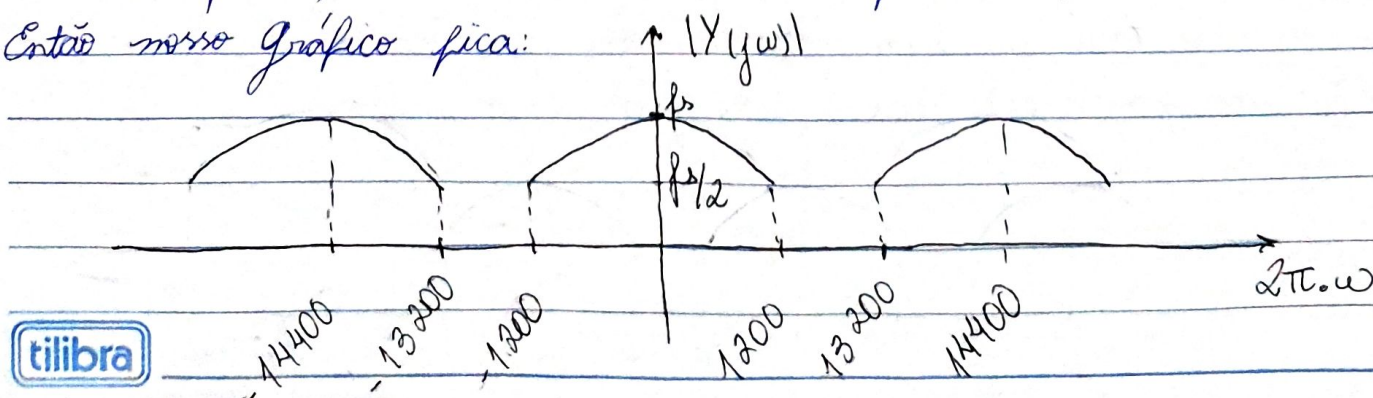 Então nosso gráfico fica:
|Y(jω)|
fs
fs/2
2π.ω
-14400
-13200
-1200
1200
13200
14400
tilibra